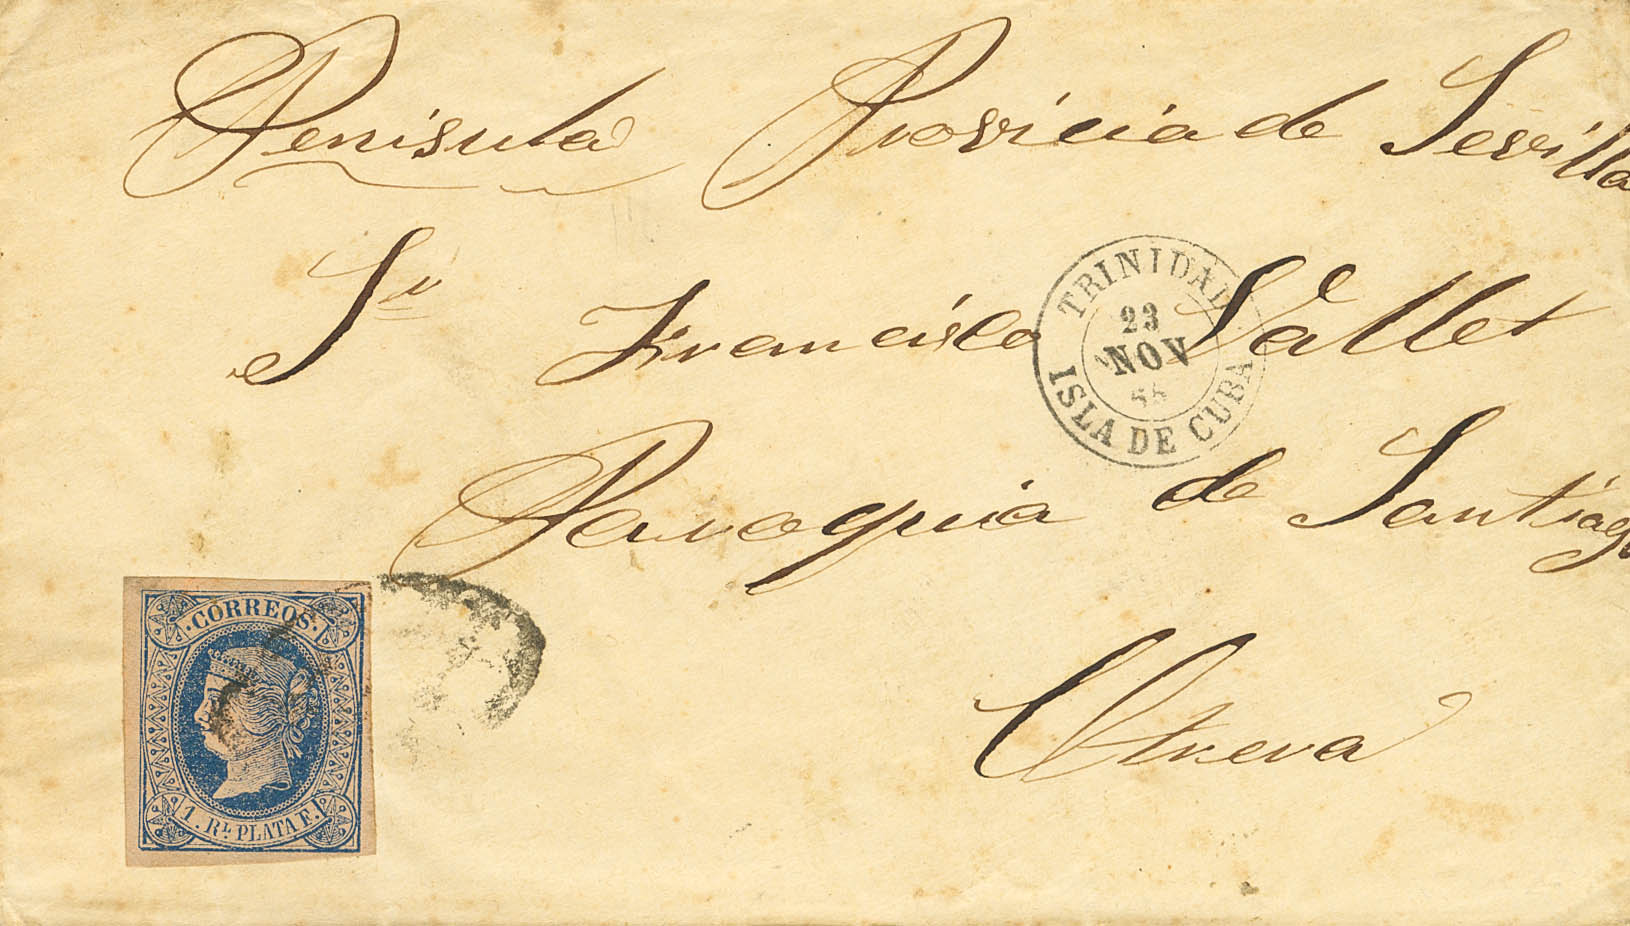 Penisula Provicia de Sevilla
Sr Francisco Vallet
Paroquia de Santiago
Utrera
TRINIDAD
23
NOV
ISLA DE CUBA
CORREOS
1. Rl PLATA F.